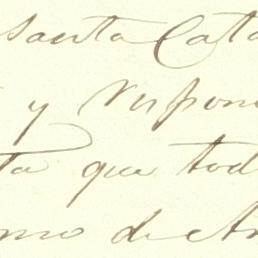 Santa Cata
y respon
ta que tod
omo de An